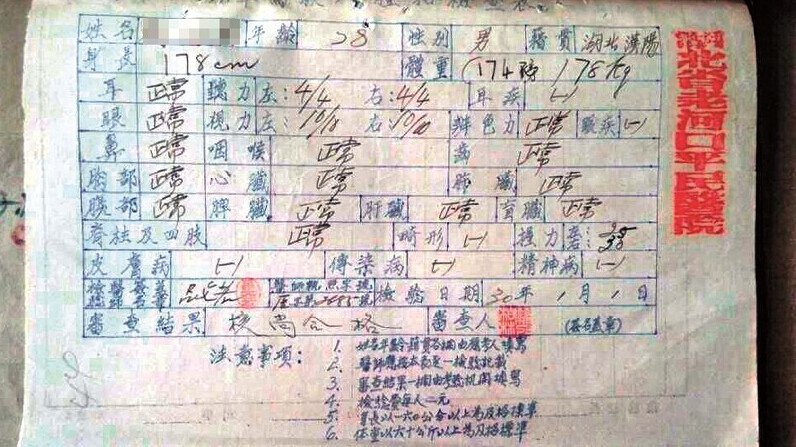 檢查表
姓名 年齡 28 性別 男 籍貫 湖北漢陽
身長 178cm 體重 174磅 178kg
耳 正常 聽力左:4/4 右:4/4 耳疾 (一)
眼 正常 視力左:10/8 右:10/10 辨色力 正常 眼疾 (一)
鼻 正常 咽喉 正常 正常
胸部 正常 心臟 正常 肺臟 正常
腹部 正常 脾臟 正常 肝臟 正常 腎臟 正常
脊柱及四肢 正常 畸形 (一) 握力 35 38
皮膚病 (一) 傳染病 (一) 精神病 (一)
檢驗日期 30年 1月 1日
審查結果 合格 審查人 (簽名蓋章)
注意事項:
1. 姓名年齡籍貫各欄由應考人填寫
2. 醫師應按本表逐一檢驗記載
3. 審查結果一欄由考驗機關填寫
4. 檢驗費每人二元
5. 身長以一六0公分以上為及格標準
6. 体重以六十公斤以上為及格標準
湖北省老河口平民醫院